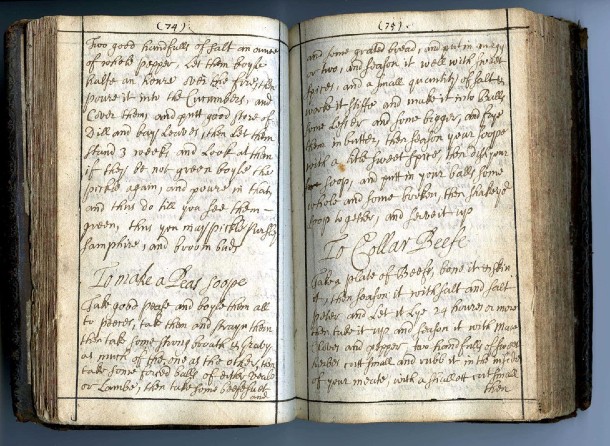 (74)
Two good handfulls of salt an ounce
of whole pepper, Let them boyle
halfe an houre over the fire, then
poure it into the Cucumbers, and
Cover them, and putt good store of
Dill and bay Leaves, then Let them
stand 3 weeks and Look at them
if they be not green boyle the
pickle again, and poure in that,
and thus do till you see them
green, thus you may pickle
samphire, and broom buds
To make a Peas soope
Take good pease and boyle them all
to peeces, take them and strayn them
then take some strong broath &
as much of the one as the other, then
take some forced balls of either Veale
or Lambe, then take some beefe suet
and
(75)
and some grated bread, and putt in an egg
or two, and season it well with sweet
spices, and a small quantity of salt,
work it stiffe and make it into Balls
some Lesser and some bigger, and frye
them in butter, then season your soope
with a litle sweet spice, then dish your
soop, and putt in your balls some
whole and some broken, then
soop together, and serve it up
To Collar Beefe
Take a plate of Beefe, bone it & skin
it, then season it with salt and salt
peter and Let it Lye 24 houres or more
then take it up and season it with Mace
Cloves and pepper, two handfulls of sweet
herbes cutt small and rubb it in the inside
of your meate, with a cutt small
then